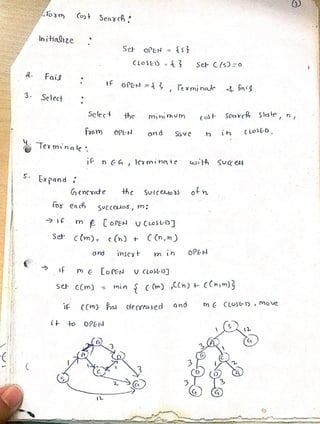 Uniform Cost Search :
Initialize :
Set OPEN = {s}
CLOSED = { } Set C(s)=0
2. Fail : if OPEN = { }, Terminate & fail.
3. Select :
Select the minimum cost search state, n,
from OPEN and save n in CLOSED.
4. Terminate :
if n ∈ G, terminate with success
5. Expand :
Generate the successors of n
For each successor, m:
→ if m ∉ [OPEN ∪ CLOSED]
Set C(m) = C(n) + C(n,m)
and insert m in OPEN
→ if m ∈ [OPEN ∪ CLOSED]
set C(m) = min { C(m), C(n) + C(n,m)}
if C(m) has decreased and m ∈ CLOSED, move
it to OPEN